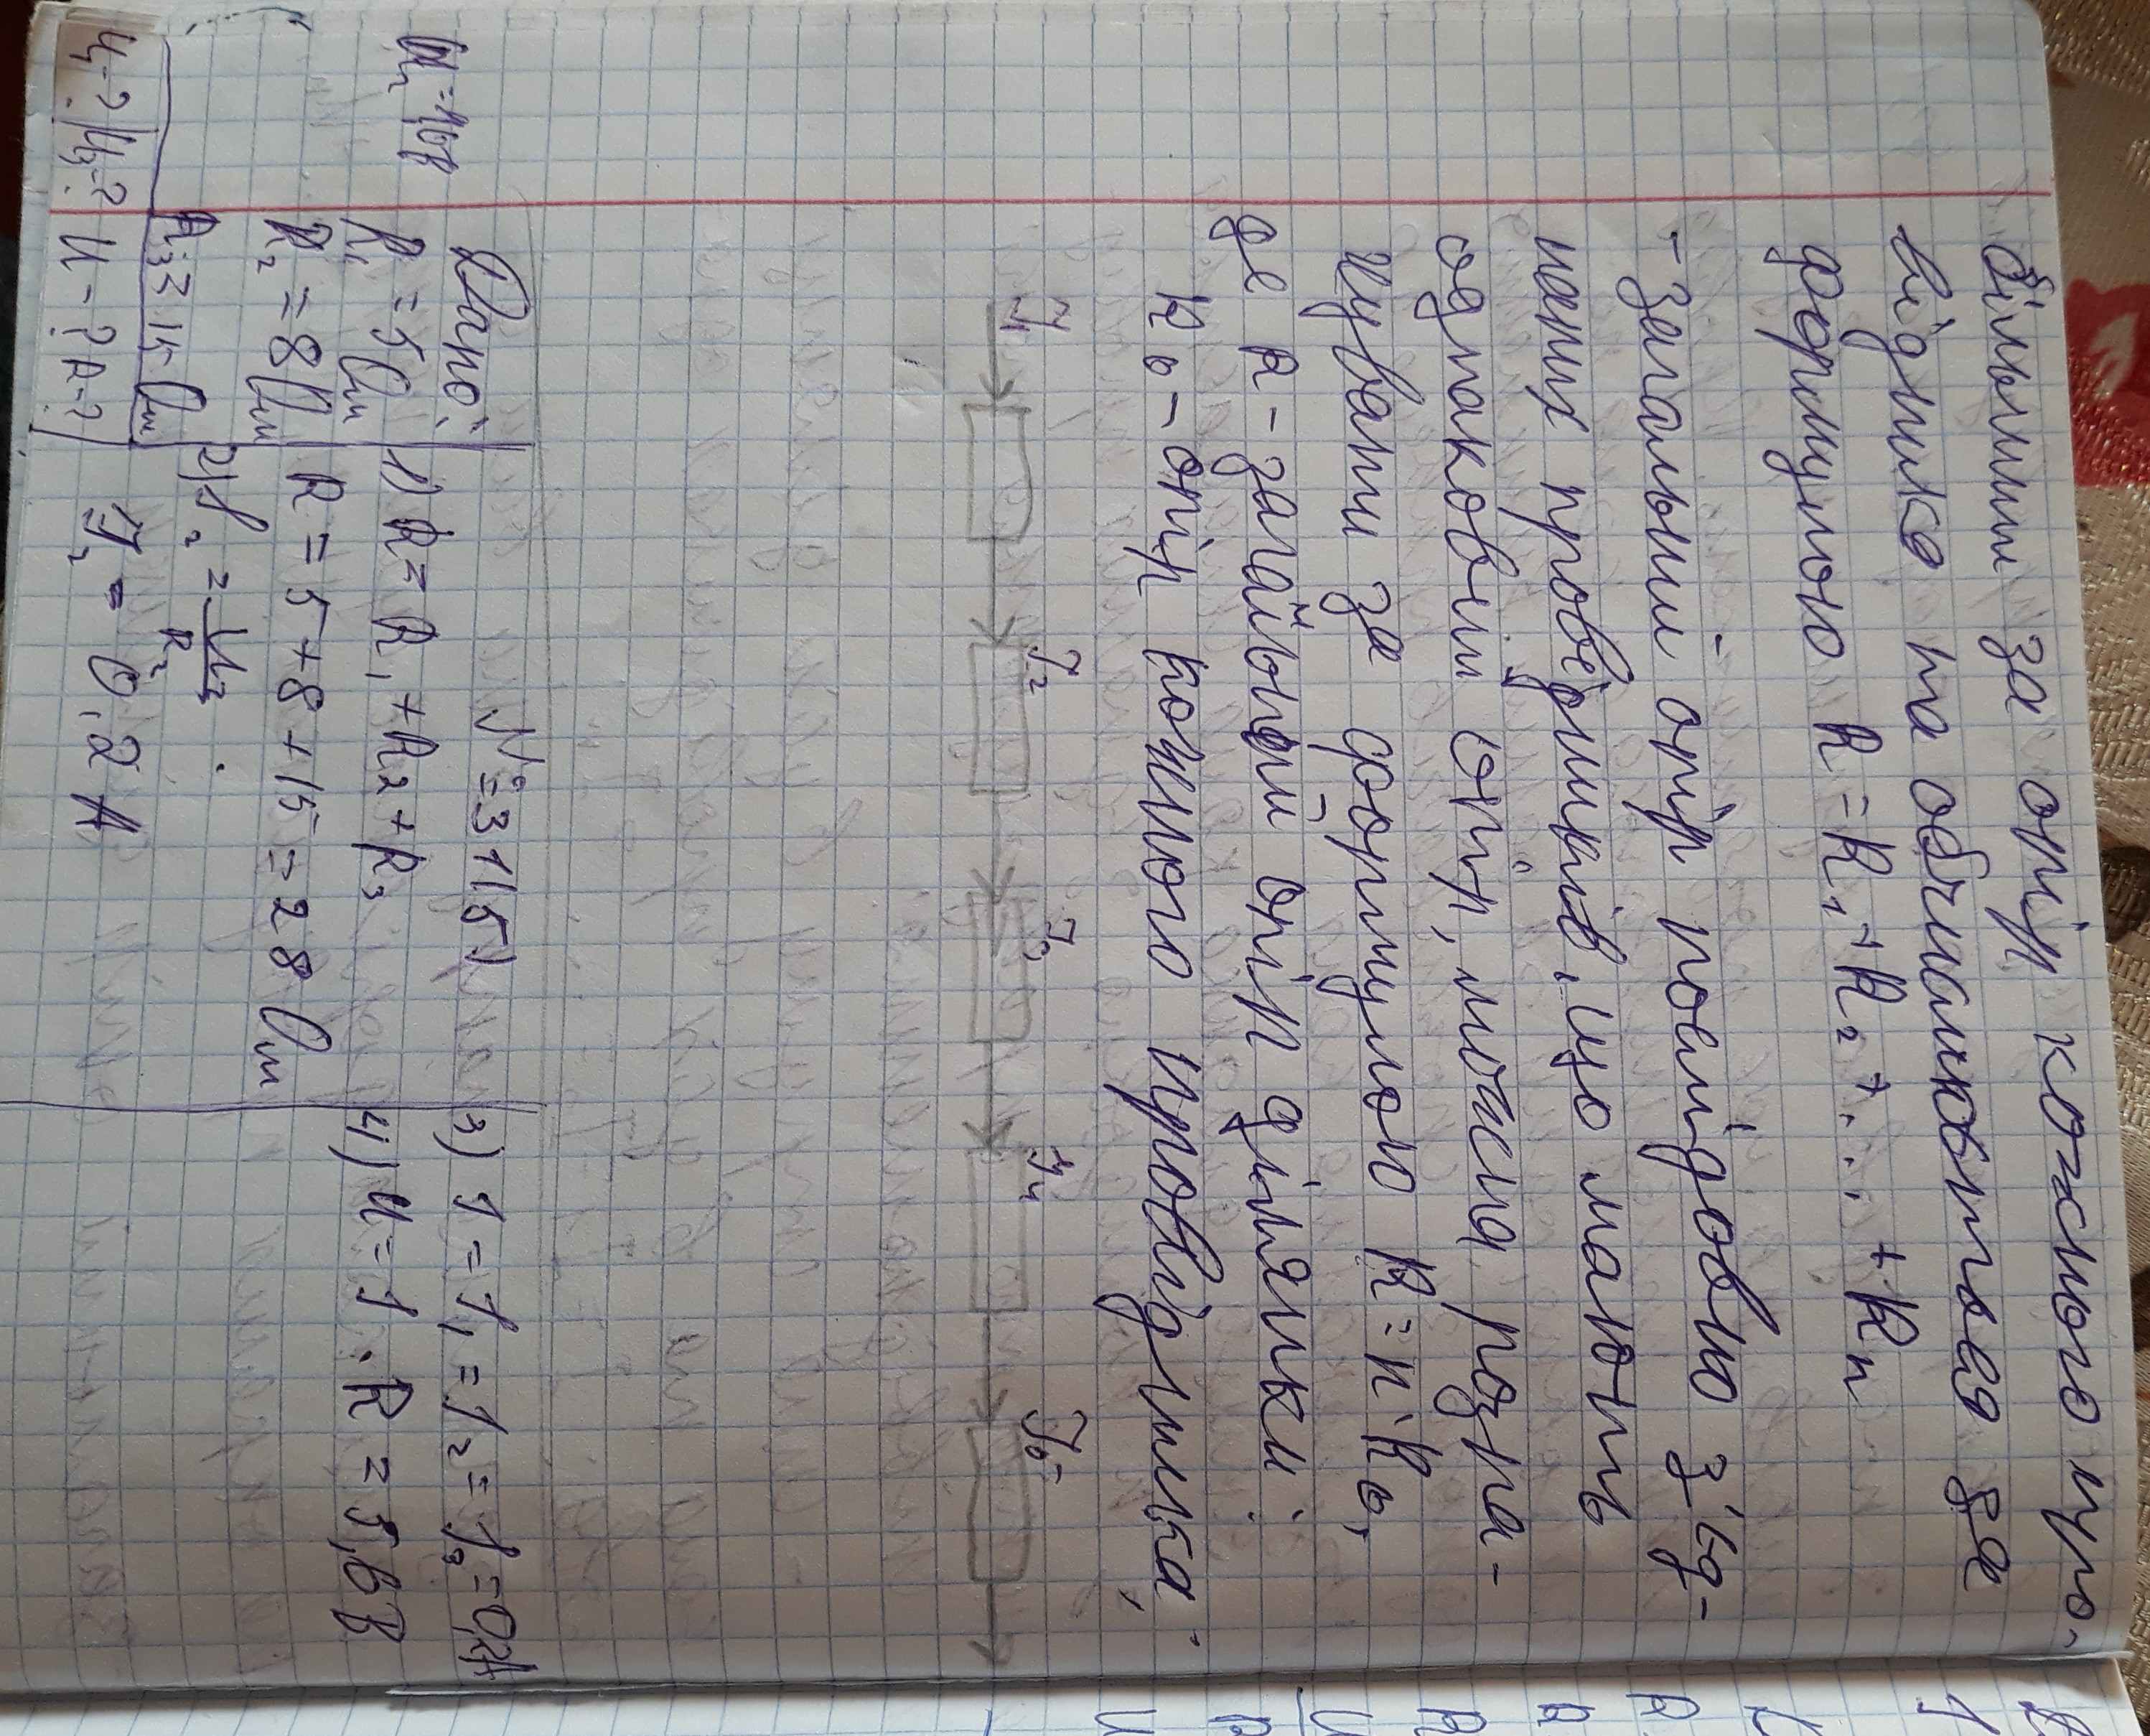 більший за опір кожного про-
відника та обчислюється за
формулою R = R₁ + R₂ + ... + Rn
- Загальний опір послідовно з'єд-
наних провідників, що мають
однаковий опір, можна розра-
хувати за формулою R = n · R₀,
де R - загальний опір ділянки:
R₀ - опір кожного провідника;
I₁ I₂ I₃ I₄ I₅
№ 31(5)
Дано:
R₁ = 5 Ом
R₂ = 8 Ом
R₃ = 15 Ом
U₁-? U₃-? U-? R-?
1) R = R₁ + R₂ + R₃
R = 5 + 8 + 15 = 28 Ом
2) I₂ = U₂/R₂
I₂ = 0,2 A
3) I = I₁ = I₂ = I₃ = 0,2A
4) U = I · R = 5,6 В